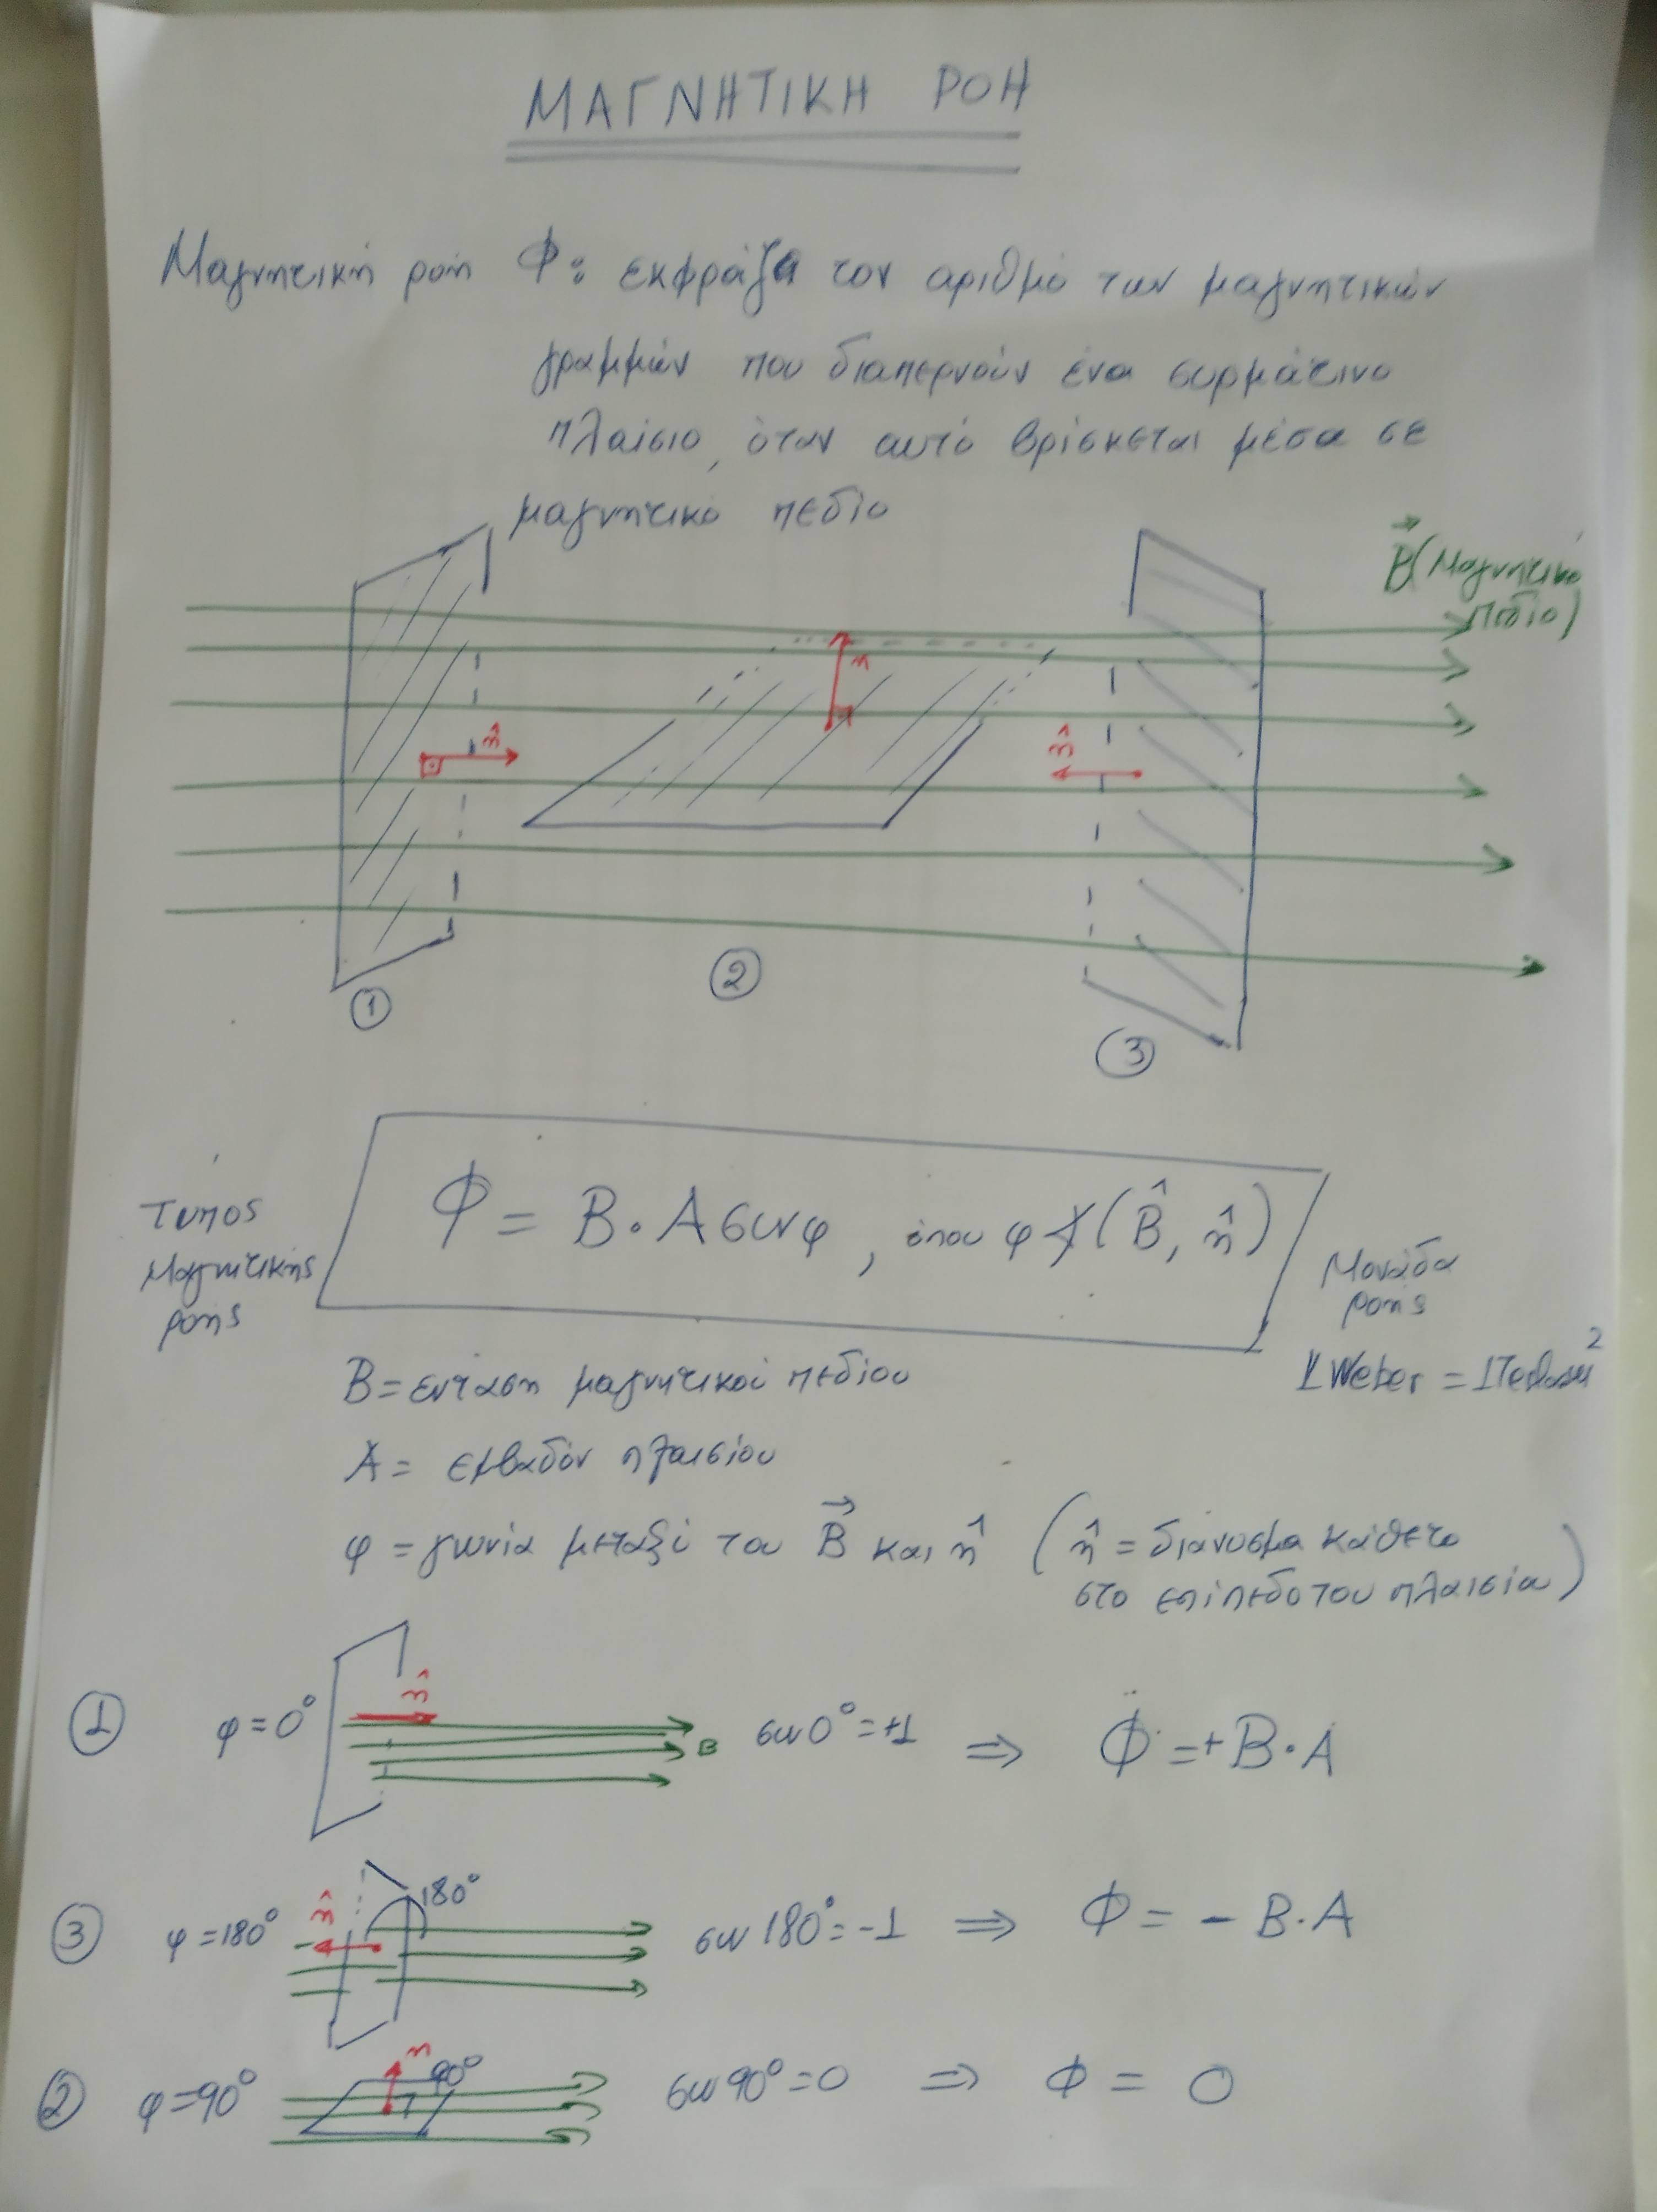 ΜΑΓΝΗΤΙΚΗ ΡΟΗ
Μαγνητική ροή Φ: εκφράζει τον αριθμό των μαγνητικών
γραμμών που διαπερνούν ένα συρμάτινο
πλαίσιο, όταν αυτό βρίσκεται μέσα σε
μαγνητικό πεδίο
B⃗ (Μαγνητικό
πεδίο)
n̂
n
n̂
1
2
3
Τυπος
μαγνητικής
ροής
Φ = B·Aσυνφ, όπου φ ∢(B̂, n̂)
Μονάδα
ροής
1 Weber = 1Tesla·m²
B = ενταση μαγνητικού πεδίου
A = εμβαδόν πλαισίου
φ = γωνία μεταξύ του B⃗ και n̂ (n̂ = διάνυσμα κάθετο
στο επίπεδο του πλαισίου)
1 φ=0° n̂ B συν0°=+1 ⇒ Φ=+B·A
3 φ=180° n̂ 180° συν180°=-1 ⇒ Φ = -B·A
2 φ=90° n 90° συν90°=0 ⇒ Φ = 0